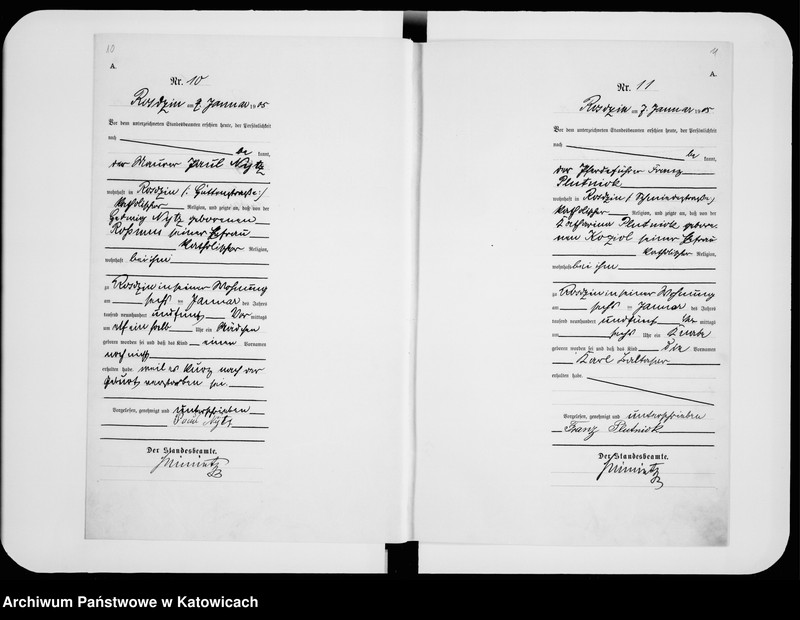 10
A.
Nr. 10
Rosdzin am 7. Januar 1905
Vor dem unterzeichneten Standesbeamten erschien heute, der Persönlichkeit
nach
be kannt,
der Maurer Paul Nytz
wohnhaft in Rosdzin (: Hüttenstraße:)
katholischer Religion, und zeigte an, daß von der
Hedwig Nytz geborenen
seiner Ehefrau
katholischer Religion,
wohnhaft bei ihm
zu Rosdzin in seiner Wohnung
am sechs ten Januar des Jahres
tausend neunhundert und fünf Vor mittags
um elf ein halb Uhr ein Mädchen
geboren worden sei und daß das Kind einen Vornamen
noch nicht
erhalten habe weil es kurz nach der
Geburt verstorben sei.
Vorgelesen, genehmigt und unterschrieben
Paul Nytz
Der Standesbeamte.
11
A.
Nr. 11
Rosdzin am 7. Januar 1905
Vor dem unterzeichneten Standesbeamten erschien heute, der Persönlichkeit
nach
be kannt,
der Pferdeführer Franz
Plutniok
wohnhaft in Rosdzin (Schmiedestraße)
katholischer Religion, und zeigte an, daß von der
Katharina Plutniok gebore-
nen Koziol seiner Ehefrau
katholischer Religion,
wohnhaft bei ihm
zu Rosdzin in seiner Wohnung
am sechs ten Januar des Jahres
tausend neunhundert und fünf mittags
um sechs Uhr ein Knabe
geboren worden sei und daß das Kind die Vornamen
Karl Baltasar
erhalten habe.
Vorgelesen, genehmigt und unterschrieben
Franz Plutniok
Der Standesbeamte.
Archiwum Państwowe w Katowicach